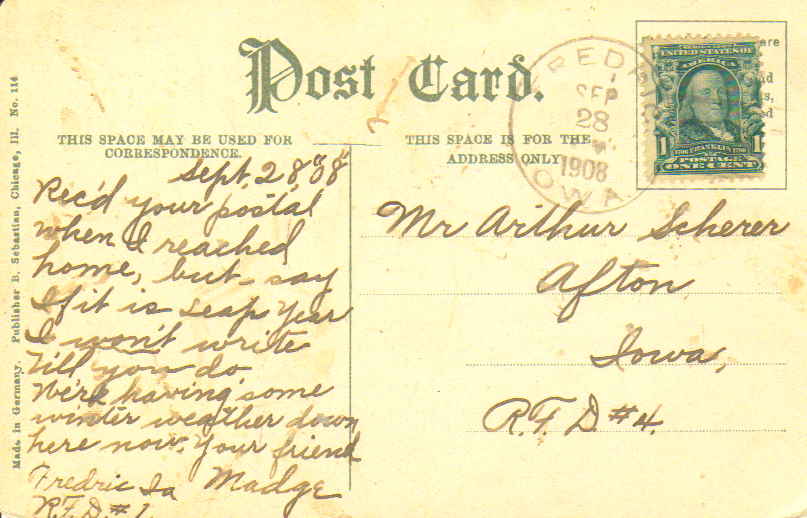 Post Card.
THIS SPACE MAY BE USED FOR
CORRESPONDENCE.
THIS SPACE IS FOR THE
ADDRESS ONLY
SEP
28
1908
IOWA
UNITED STATES OF
AMERICA
1 FRANKLIN 1
POSTAGE
ONE CENT
Made in Germany. Publisher B. Sebastian, Chicago, Ill. No. 114
Sept, 28 "08"
Rec'd your postal
when I reached
home, but say
If it is Leap Year
I won't write
till you do
We're having some
winter weather down
here now. Your friend
Fredric Ia Madge
R.F.D. # 1
Mr Arthur Scherer
Afton
Iowa,
R.F.D #4.